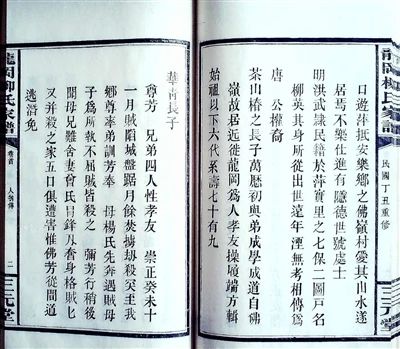 龍岡柳氏家譜
民國丁丑重修
口遊萍抵安樂鄉之佛嶺村愛其山水遂
居焉不樂仕進有隱德世號處士
明洪武隸民籍於萍實里之七保二圖戶名
柳英其身所從出世遠年湮無考相傳爲
唐 公權裔
茶山椿之長子萬厯初與弟成學成道自佛
嶺故居近徙龍岡爲人孝友操履端方輯
始祖以下六代系壽七十有九
華靑長子
尊芳 兄弟四人性孝友 崇正癸未十
一月賊陷城盤踞月餘焚擄刧殺突至我
鄉尊率弟訓芳奉 母楊氏先奔遇賊母
子爲所執不屈賊皆殺之 彌芳行稍後
聞母兄難舍妻曾氏冒鋒刄奮身格賊匕
又并殺之家五日俱遭害惟佛芳從間道
逃潛免
龍岡柳氏家譜
卷首
人物傳
二
三元堂
三元堂